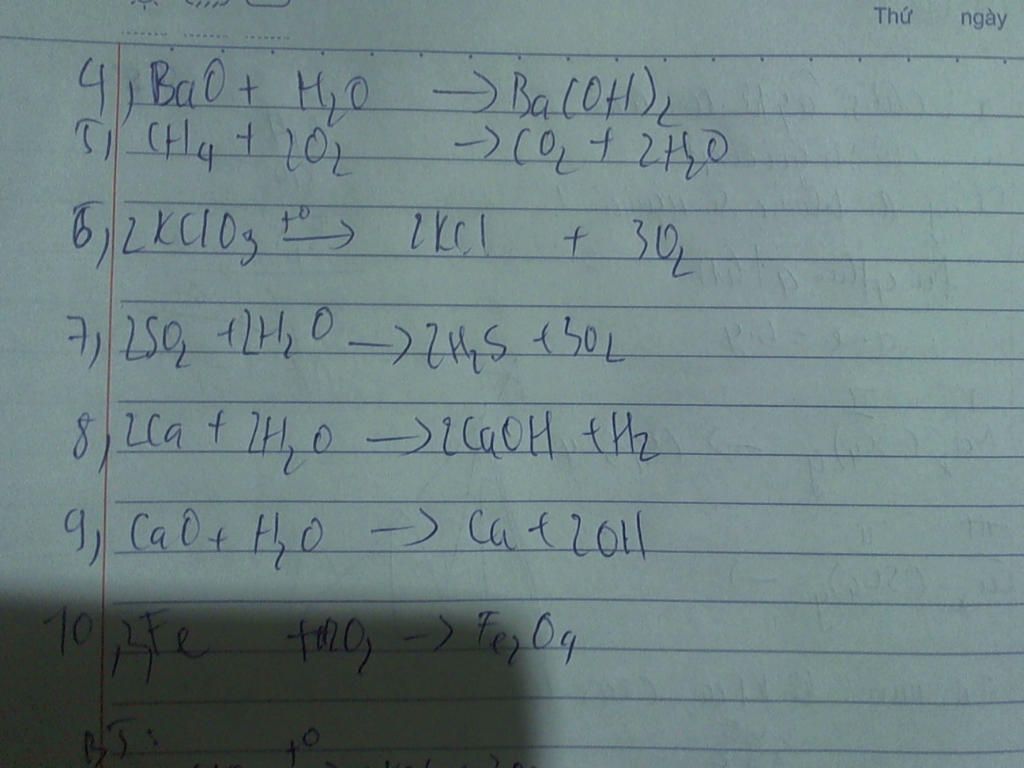 Thứ ngày
4, BaO + H₂O → Ba(OH)₂
5, CH₄ + 2O₂ → CO₂ + 2H₂O
6, 2KClO₃ t⁰→ 2KCl + 3O₂
7, 2SO₂ + 2H₂O → 2H₂S + 3O₂
8, 2Ca + 2H₂O → 2CaOH + H₂
9, CaO + H₂O → Ca + 2OH
10, Fe → O₄
BT:
t⁰